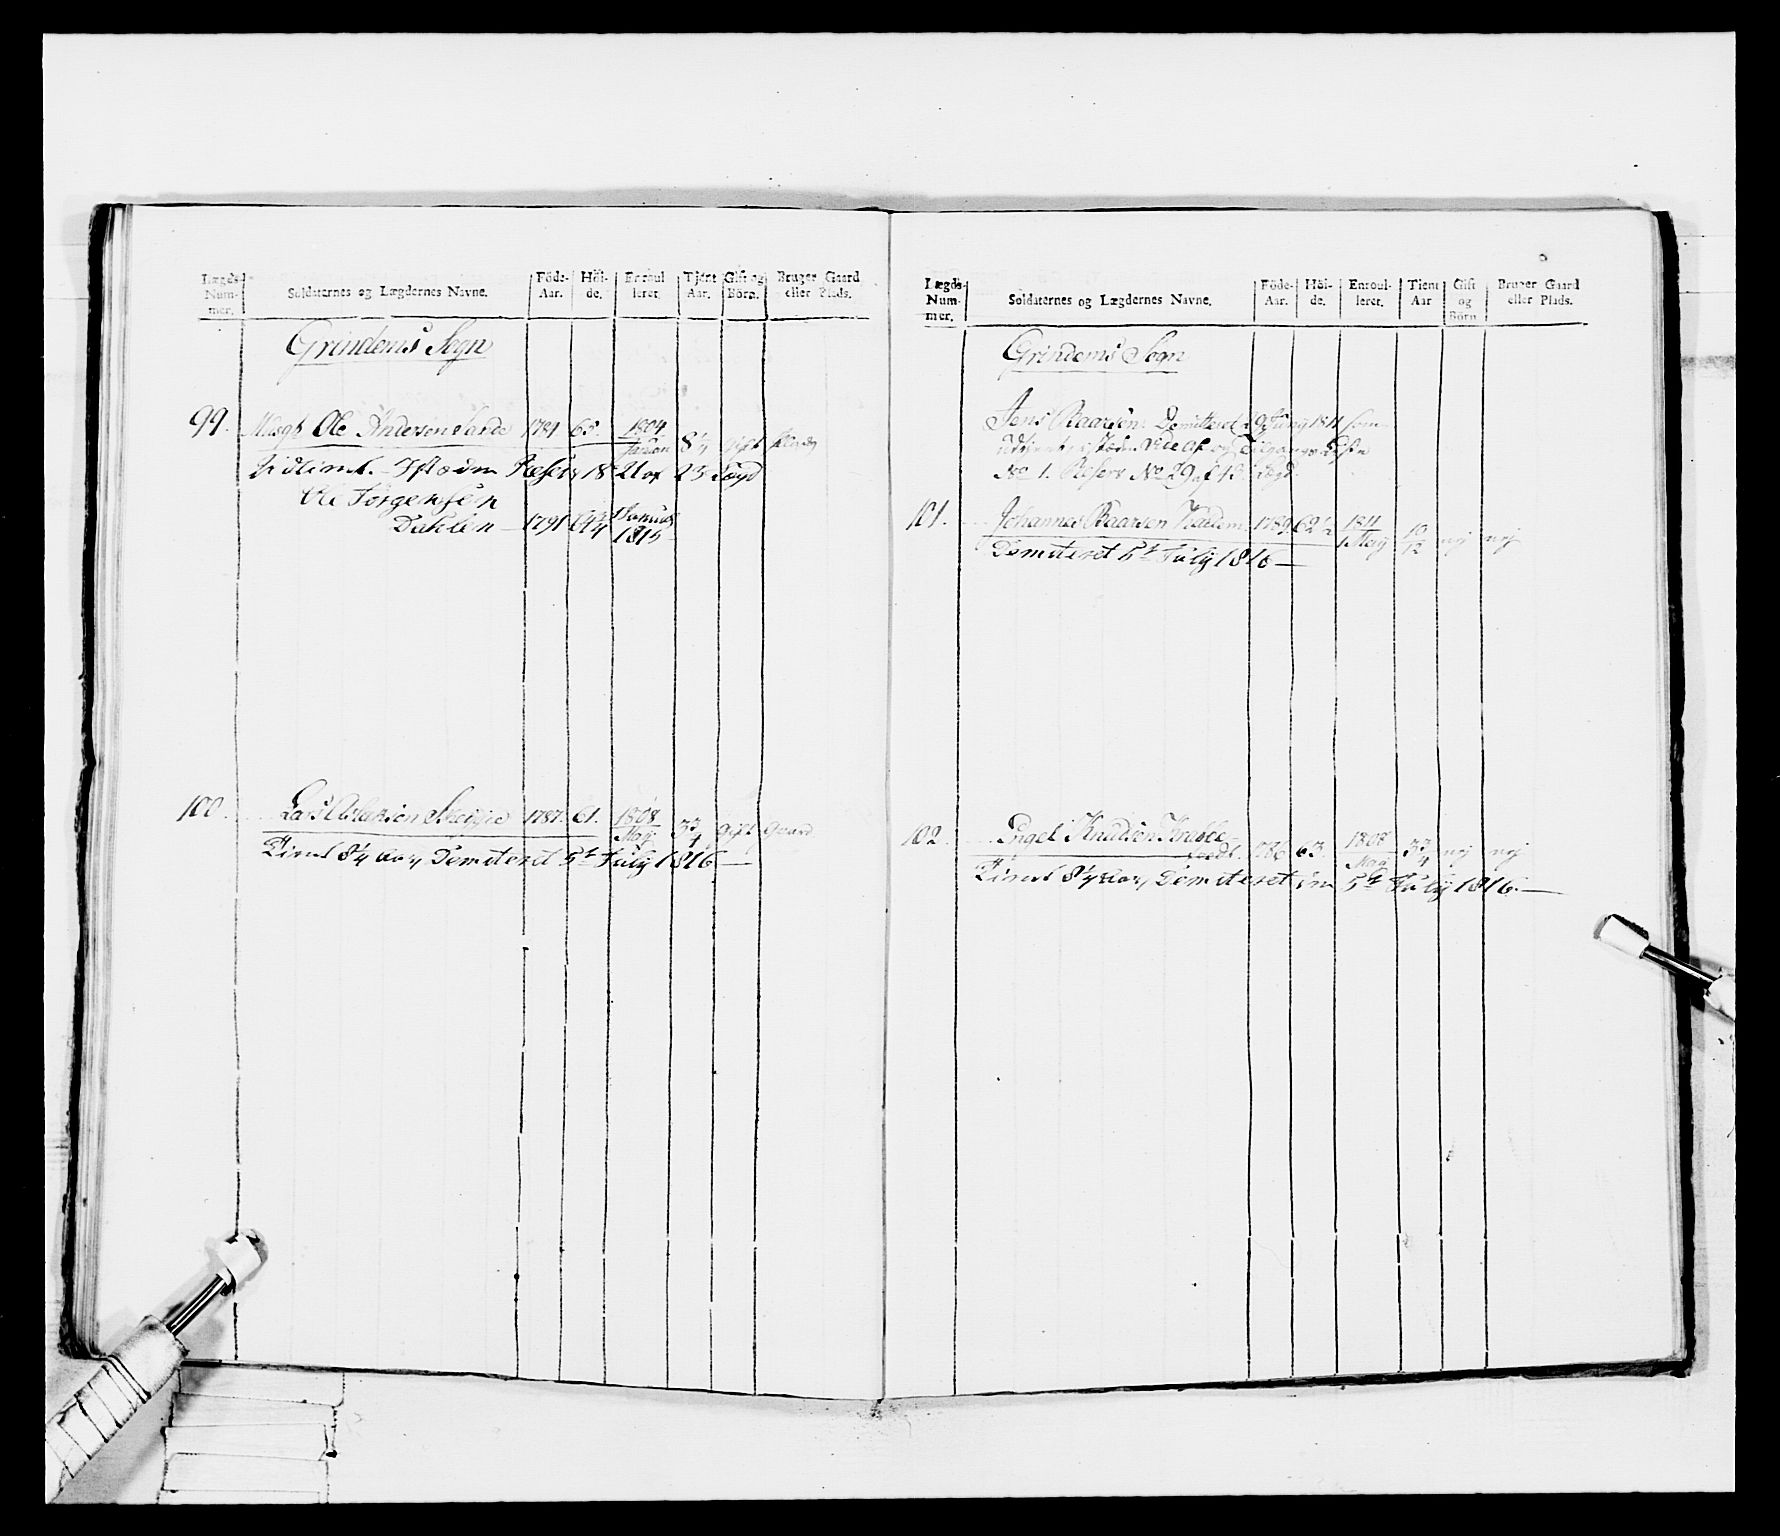 Lægds-Num-mer. Soldaternes og Lægdernes Navne. Föde-Aar. Höi-de. Enroul leret. Tjent Aar. Gift og Börn. Bruger Gaard eller Plads.
Grindems Sogn
99. Ole Andersen Sande 1784 65. 1804 Januar 8 1/4 gift Plads
Udtient. 23 Lægd
Ole Jörgensen
Dahlen 1791 64 3/4 Januar 1815
100. Lars Larsen Skeggie 1787. 61. 1808 May 3 3/4 gift Gaard
Tient 8 1/4 Aar, Demiteret 5te July 1816
Lægds-Num-mer. Soldaternes og Lægdernes Navne. Föde-Aar. Höi-de. Enroul-leret. Tient Aar Gift og Börn Bruger Gaard eller Plads.
Grindems Sogn
Jens Baarsen Demitteret 1811 som
udtient
No 1. No 29 af 43 Lægd.
101. Johannes Baarsen 1789 62 1/2 1811 1 May 10/12 nej nej
Demiteret 5te July 1816
102. Engel Knudsen 1786 63. 1808 May 3 3/4 nej nej
Tient 8 1/4 Aar, Demiteret 5te July 1816.